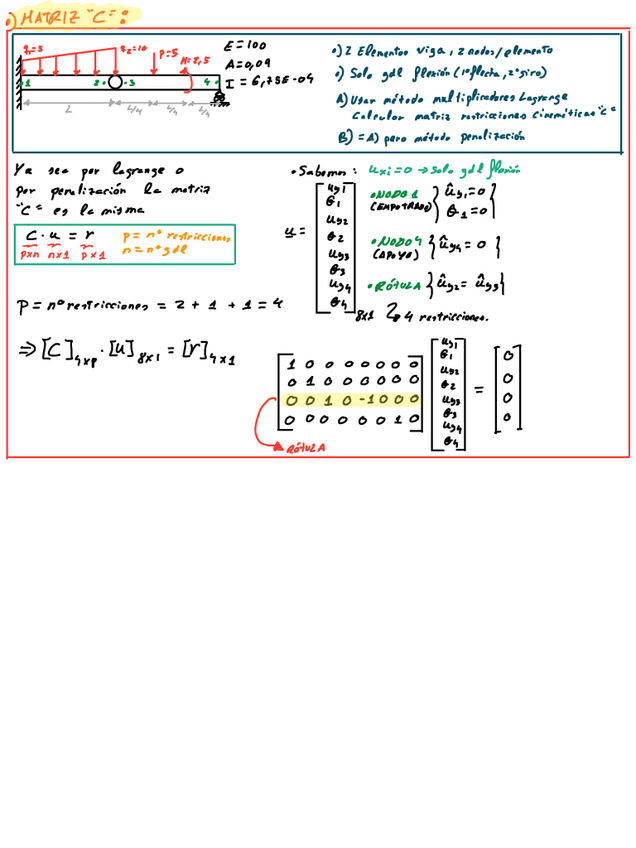 •) MATRIZ "C":
q1=5
q2=10
P=5
M=2,5
1
2
3
4
L
L/4
L/4
L/4
E = 100
A = 0,09
I = 6,75E-04
•) 2 Elementos viga, 2 nodos/elemento
•) Solo gdl flexión (1º flecta, 2º giro)
A) Usar método multiplicadores Lagrange
Calcular matriz restricciones cinemáticas "C"
B) = A) pero método penalización
Ya sea por lagrange o
por penalización la matriz
"C" es la misma
C · u = r
pxn nx1 px1
p = nº restricciones
n = nº gdl
P = nº restricciones = 2 + 1 + 1 = 4
⇒ [C]4xp · [u]8x1 = [r]4x1
• Sabemos: uxi = 0 → Solo gdl flexión
u =
uy1
θ1
uy2
θ2
uy3
θ3
uy4
θ4
8x1
• NODO 1
(EMPOTRADO)
ûy1 = 0
θ1 = 0
• NODO 4
(APOYO)
ûy4 = 0
• RÓTULA
ûy2 = ûy3
4 restricciones.
1 0 0 0 0 0 0 0
0 1 0 0 0 0 0 0
0 0 1 0 -1 0 0 0
0 0 0 0 0 0 1 0
uy1
θ1
uy2
θ2
uy3
θ3
uy4
θ4
=
0
0
0
0
RÓTULA